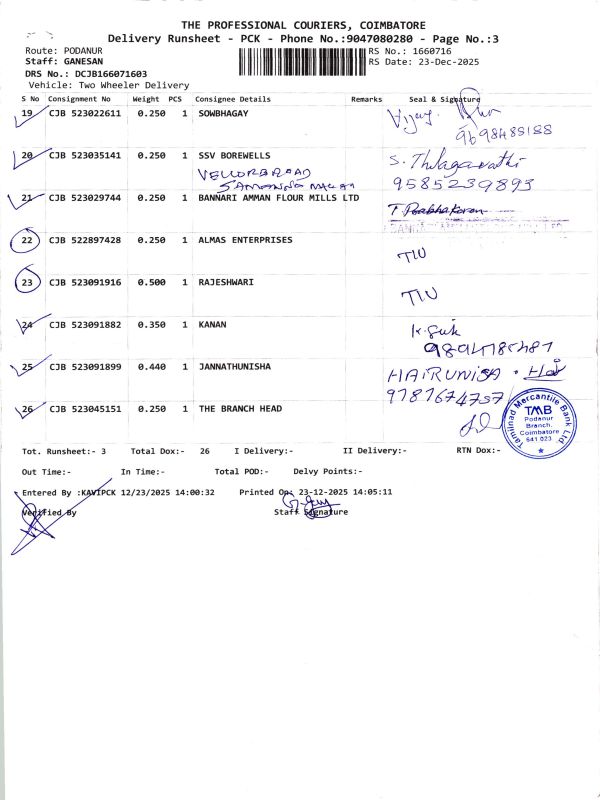 THE PROFESSIONAL COURIERS, COIMBATORE
Delivery Runsheet - PCK - Phone No.:9047080280 - Page No.:3
Route: PODANUR RS No.: 1660716
Staff: GANESAN RS Date: 23-Dec-2025
DRS No.: DCJB166071603
Vehicle: Two Wheeler Delivery
S No Consignment No Weight PCS Consignee Details Remarks Seal & Signature
19 CJB 523022611 0.250 1 SOWBHAGAY Vijay.
9698488188
20 CJB 523035141 0.250 1 SSV BOREWELLS S. Thilagavathi
9585239893
21 CJB 523029744 0.250 1 BANNARI AMMAN FLOUR MILLS LTD T Prabhakaran
22 CJB 522897428 0.250 1 ALMAS ENTERPRISES
23 CJB 523091916 0.500 1 RAJESHWARI
24 CJB 523091882 0.350 1 KANAN
25 CJB 523091899 0.440 1 JANNATHUNISHA HAIRUNISA
9787674757
26 CJB 523045151 0.250 1 THE BRANCH HEAD
Tamilnad Mercantile Bank Ltd
TMB
Podanur
Branch,
Coimbatore
641 023
Tot. Runsheet:- 3 Total Dox:- 26 I Delivery:- II Delivery:- RTN Dox:-
Out Time:- In Time:- Total POD:- Delvy Points:-
Entered By :KAVIPCK 12/23/2025 14:00:32 Printed On: 23-12-2025 14:05:11
Verified By Staff Signature